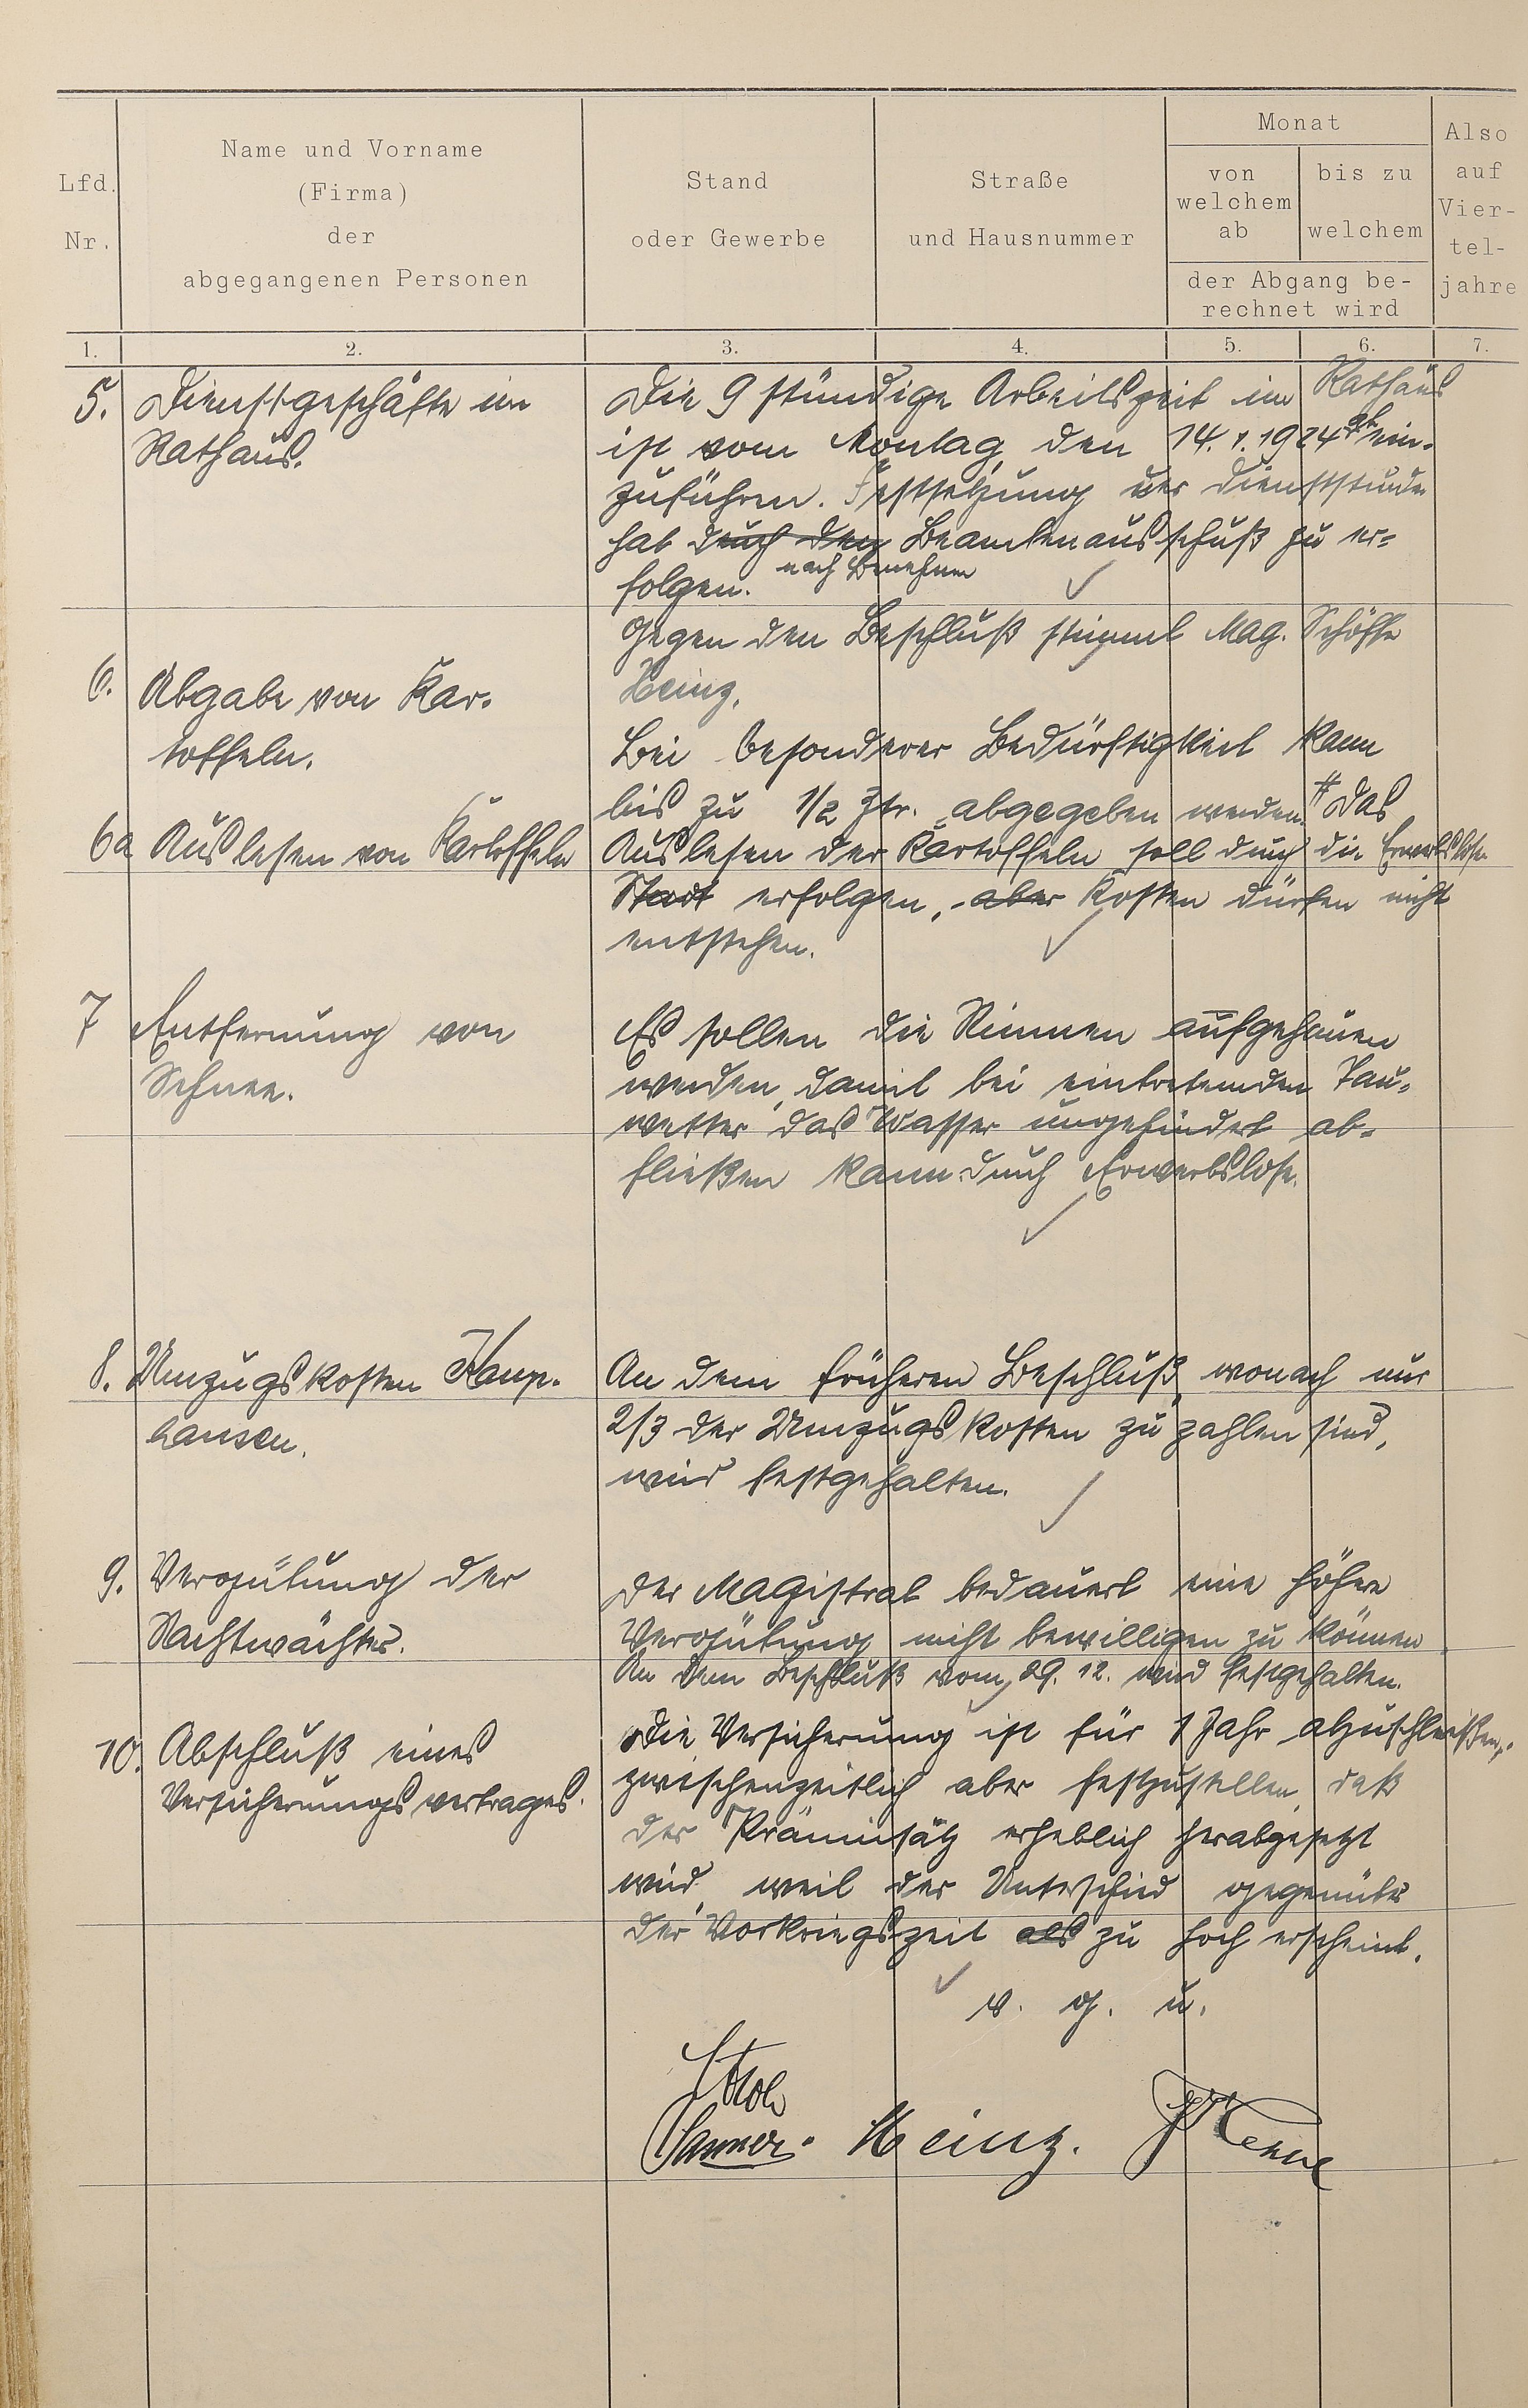 Lfd. Nr.
Name und Vorname
(Firma)
der
abgegangenen Personen
Stand
oder Gewerbe
Straße
und Hausnummer
Monat
von
welchem
ab
bis zu
welchem
der Abgang be-
rechnet wird
Also
auf
Vier-
tel-
jahre
1. 2. 3. 4. 5. 6. 7.
5. Dienstgeschäfte im
Rathaus.
Die 9 stündige Arbeitszeit im Rathaus
ist vom Montag, den 14.1.1924 ab ein-
zuführen. Festsetzung der Dienststunden
hat durch den Beamtenausschuß zu er-
nach Benehmen
folgen.
Gegen den Beschluß stimmt Mag. Schöffe
Heinz.
6. Abgabe von Kar-
toffeln.
Bei besonderer Bedürftigkeit kann
bis zu 1/2 Ztr. abgegeben werden. # Das
6a Auslesen von Kartoffeln
Auslesen der Kartoffeln soll durch die Erwerbslose
Stadt erfolgen, aber Kosten dürfen nicht
entstehen.
7 Entfernung von
Schnee.
Es sollen die Rinnen aufgehauen
werden, damit bei eintretemden Tau-
wetter das Wasser ungehindert ab-
fließen kann durch Erwerbslose.
8. Umzugskosten Kamp-
hausen.
An dem früheren Beschluß, wonach nur
2/3 der Umzugskosten zu zahlen sind,
wird festgehalten.
9. Vergütung der
Nachtwächter.
Der Magistrat bedauert eine höhere
Vergütung nicht bewilligen zu können
An dem Beschluß vom 29. 12. wird festgehalten.
10. Abschluß eines
Versicherungsvertrages.
Die Versicherung ist für 1 Jahr abzuschließen,
zwischenzeitlich aber festzustellen, daß
der Prämiensatz erheblich herabgesetzt
wird, weil der Unterschied gegenüber
der Vorkriegszeit als zu hoch erscheint.
v. g. u.
Heinz.